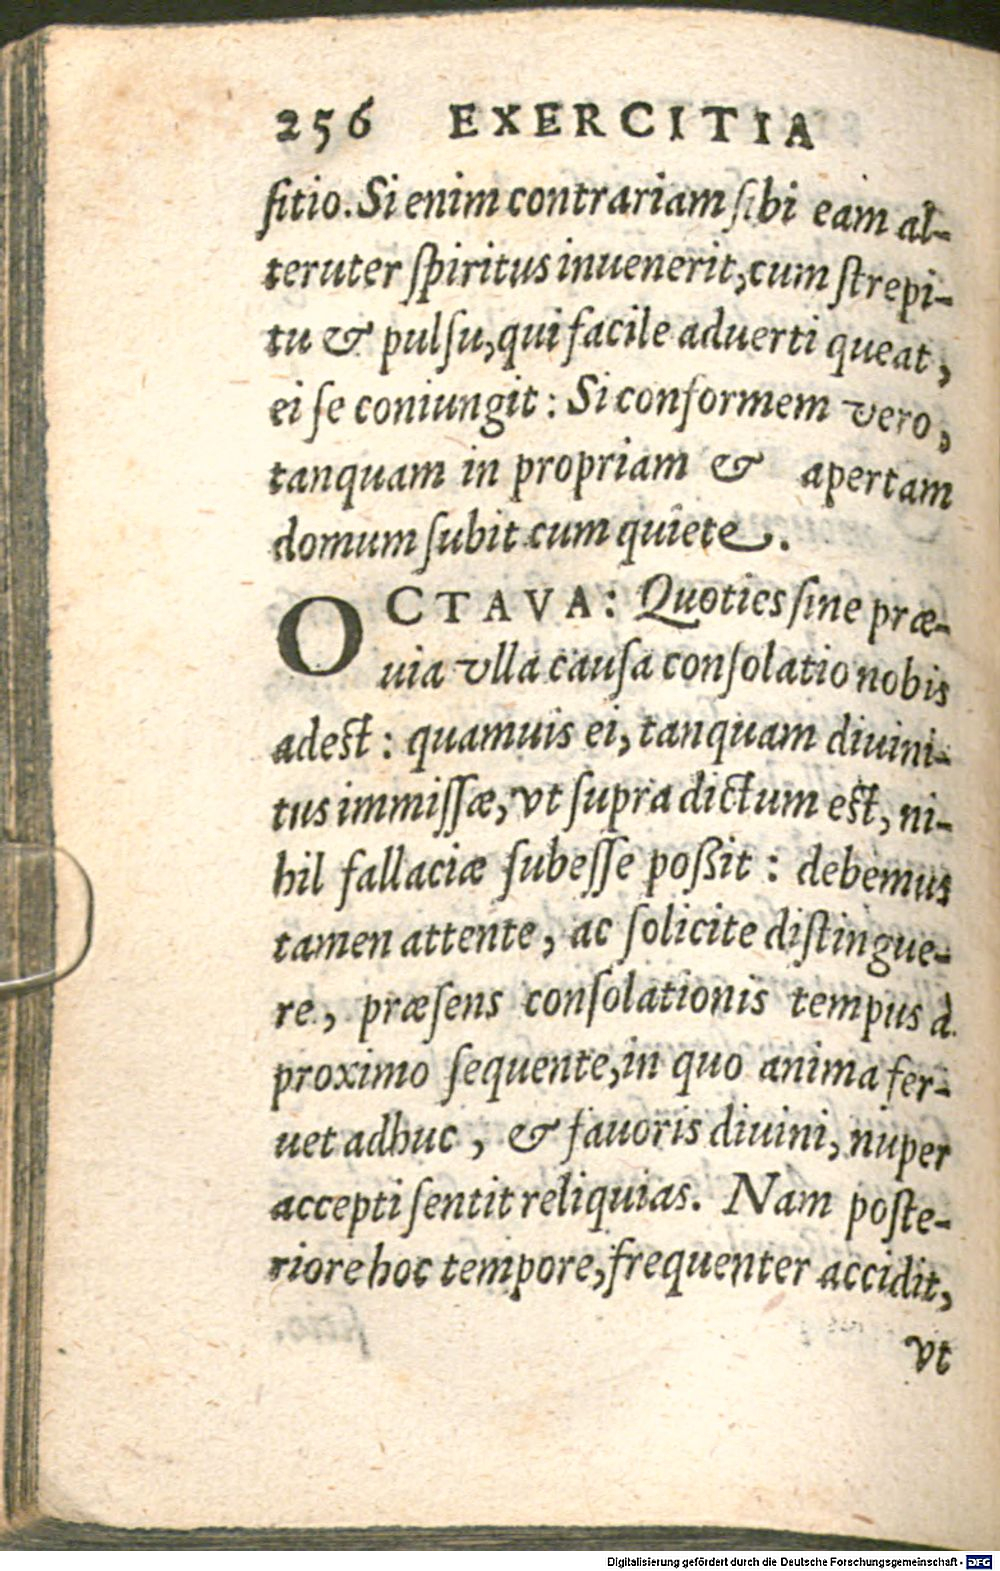 256 EXERCITIA
ſitio. Si enim contrariam ſibi eam al-
teruter ſpiritus inuenerit, cum ſtrepi-
tu & pulſu, qui facile aduerti queat,
ei ſe coniungit: Si conformem vero,
tanquam in propriam & apertam
domum ſubit cum quiete.
OCTAVA: Quoties ſine præ-
uia vlla cauſa conſolatio nobis
adeſt: quamuis ei, tanquam diuini-
tus immiſſæ, vt ſupra dictum eſt, ni-
hil fallaciæ ſubeſſe poßit: debemus
tamen attente, ac ſolicite diſtingue-
re, præſens conſolationis tempus à
proximo ſequente, in quo anima fer-
uet adhuc, & fauoris diuini, nuper
accepti ſentit reliquias. Nam poſte-
riore hoc tempore, frequenter accidit,
vt
Digitalisierung gefördert durch die Deutsche Forschungsgemeinschaft - DFG